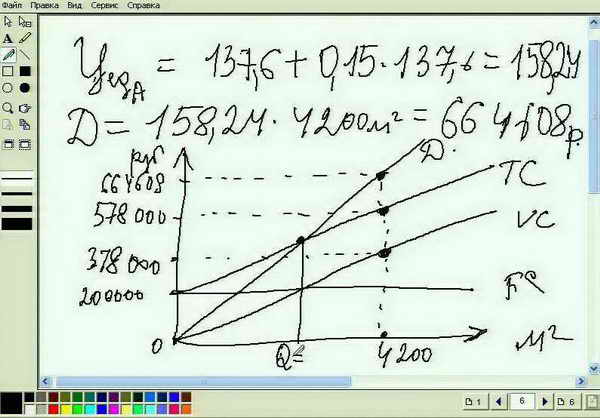 Файл Правка Вид Сервис Справка
Цед_А = 137,6 + 0,15 · 137,6 = 158,24
Д = 158,24 · 4200 м² = 664608 р.
руб
664608
578 000
378 000
200000
0
Д.
TC
VC
FC
Q=
4200
м²
A
1
6
6